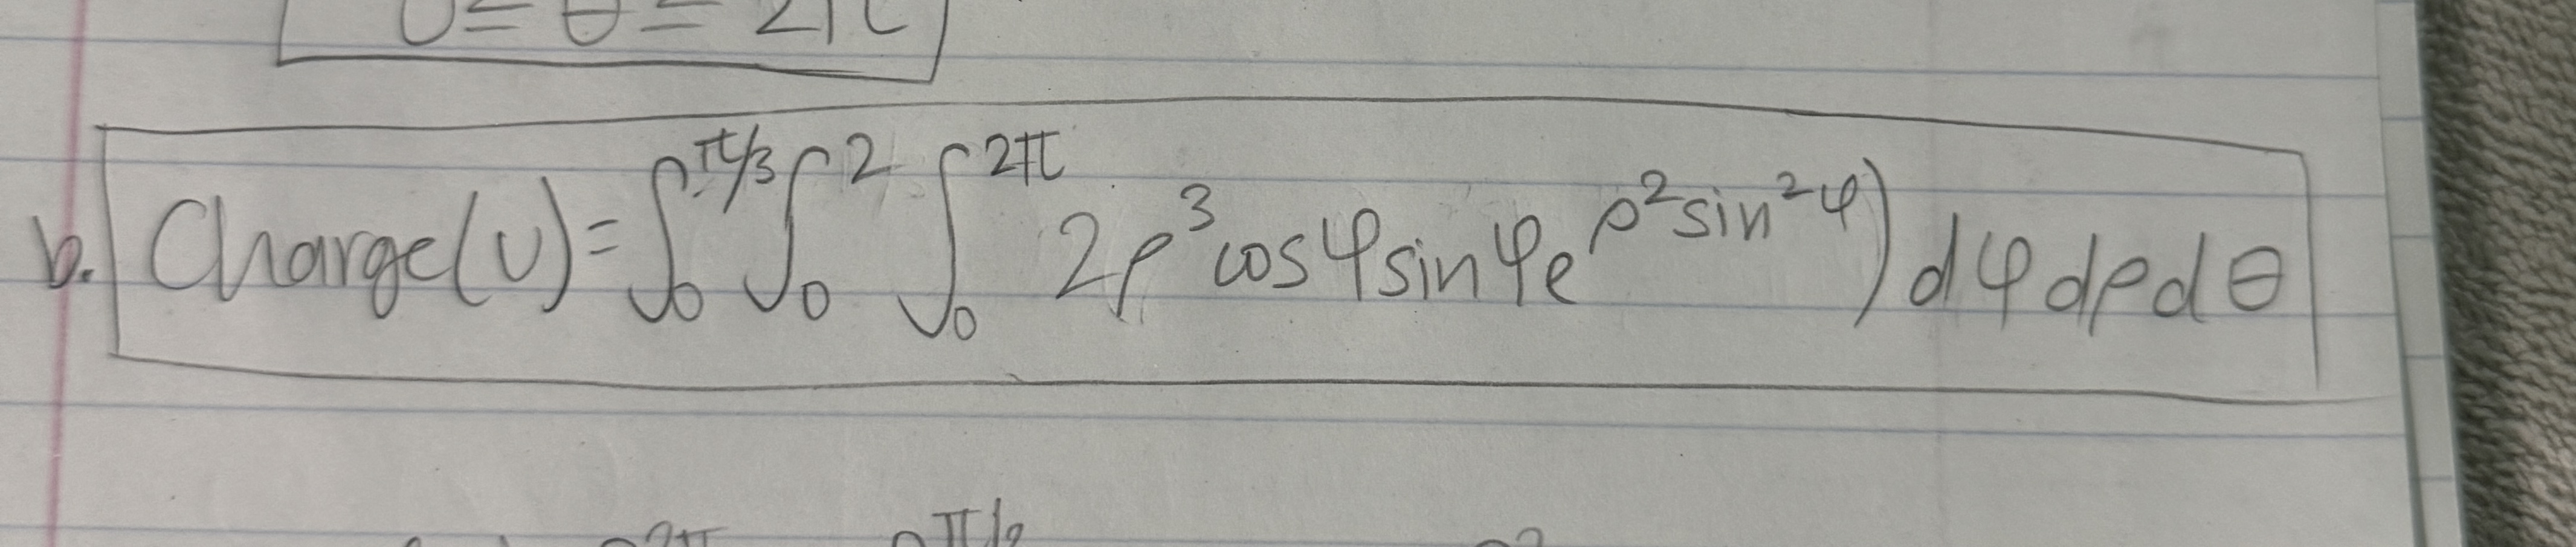 0 ≤ θ ≤ 2π
b. Charge(U) = ∫₀^{π/3} ∫₀² ∫₀^{2π} 2ρ³cosφsinφe^{ρ²sin²φ}) dφdρdθ
2π π/2